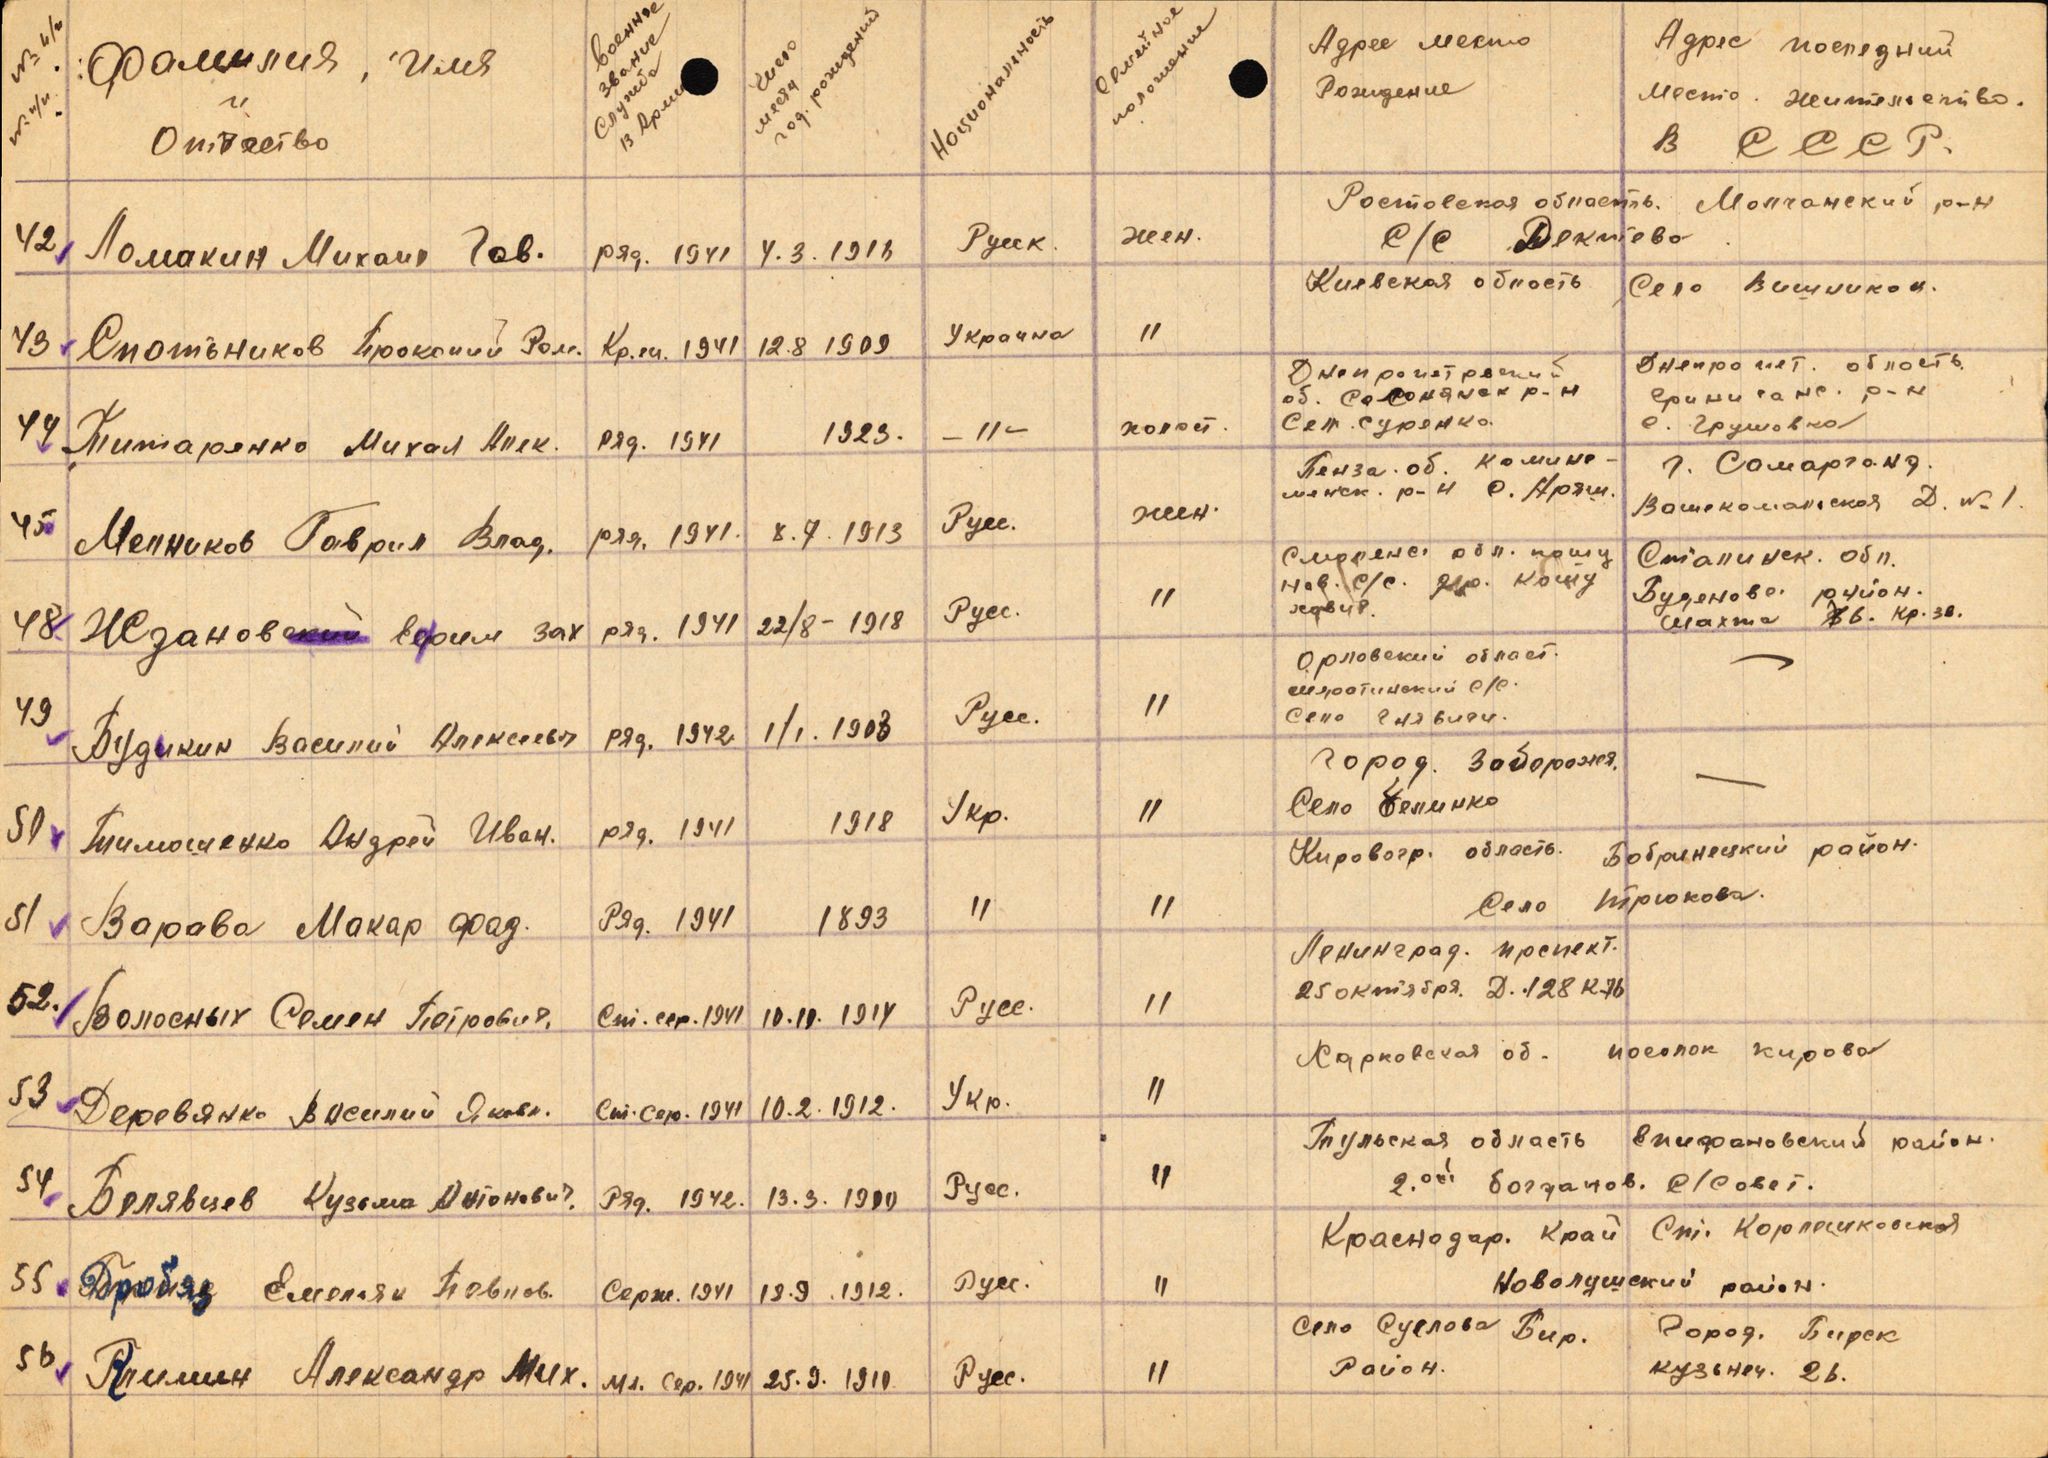 № б/п.
№ п/п.
Фамилия, Имя
и
Отчество
военное
звание
Служба
в Арми
число
месяц
год. рождений
Национальность
Семейное
положение
Адрес место
Рождение
Адрес последний
место. жительство.
В СССР.
42 Ломакин Михаил Гав. ряд. 1941 4.3.1913 Русск. жен. Ростовская область. Молчанский р-н
С/С Дектево
43 Спотьников Прокопий Ром. Кр.ец. 1941 12.8 1909 Украина " Киевская область Село Вишникол.
44 Титаренко Михал Алек. ряд. 1941 1923. -"- холост.
Днепропетровский
об. Солонянск р-н
Сел. Суренко
Днепропет. область
Криничанс. р-н
с. Грушовка
45 Мельников Гаврил Влад. ряд. 1941. 8.7.1913 Русс. жен.
Пенза. об. Камине-
менск. р-н С. Аряш.
г. Самарганд.
Д. № 1.
48 Жданов верим Зах ряд. 1941 22/8-1918 Русс. "
Смоленс. обл. кошу
нов. с/с. дер. Кошу
Сталинск. обл.
Буденовс. район.
шахта
49 Будикин Василий Алексеевч ряд. 1942 1/1.1903 Русс. "
Орловский област.
с/с.
Село
51 Тимошенко Андрей Иван. ряд. 1941 1918 Укр. "
Город. Заборожея.
Село Белинко
51 Варава Макар Фад. Ряд. 1941 1893 " " Кировогр. область. Бобринецкий район.
Село Трюкова.
52. Волосных Семен Петрович. Ст. сер. 1941 10.10.1914 Русс. "
Ленинград. прспект.
25 октября. Д. 128 К 76
53 Деревянко Василий Яковл. Ст. Сер. 1941 10.2.1912. Укр. " Харковская об. поселок Кирова
54 Белявцев Кузьма Антонович. Ряд. 1942. 13.3.1900 Русс. " Тульская область Епифановский район.
2.ой Богданов. С/Совет.
55 Гробяз Емельян Павлов. Серж. 1941 18.9.1912. Русс. " Краснодар. Край Ст.
район.
56 Римин Александр Мих. Мл. Сер. 1941 25.9.1910 Русс. "
Село Суслова Бир.
Район.
Город. Бирск
кузьнеч. 26.